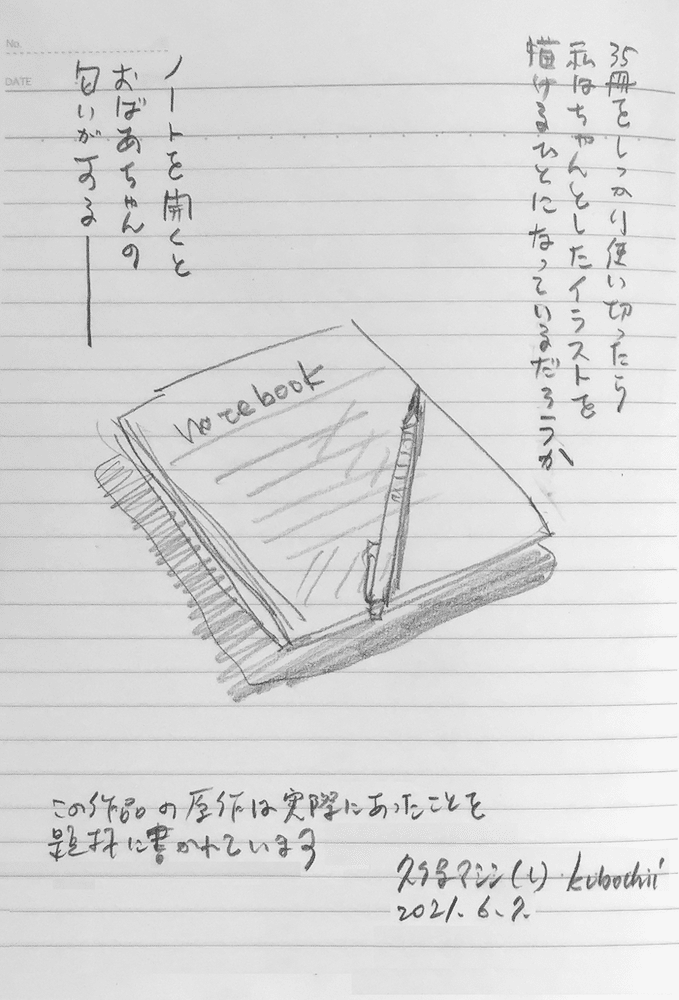 No.
DATE
35冊をしっかり使い切ったら
私はちゃんとしたイラストを
描けるひとになっているだろうか
ノートを開くと
おばあちゃんの
匂いがする――
notebook
この作品の原作は実際にあったことを
題材に書かれています
マシン(し) kubochii
2021.6.7.